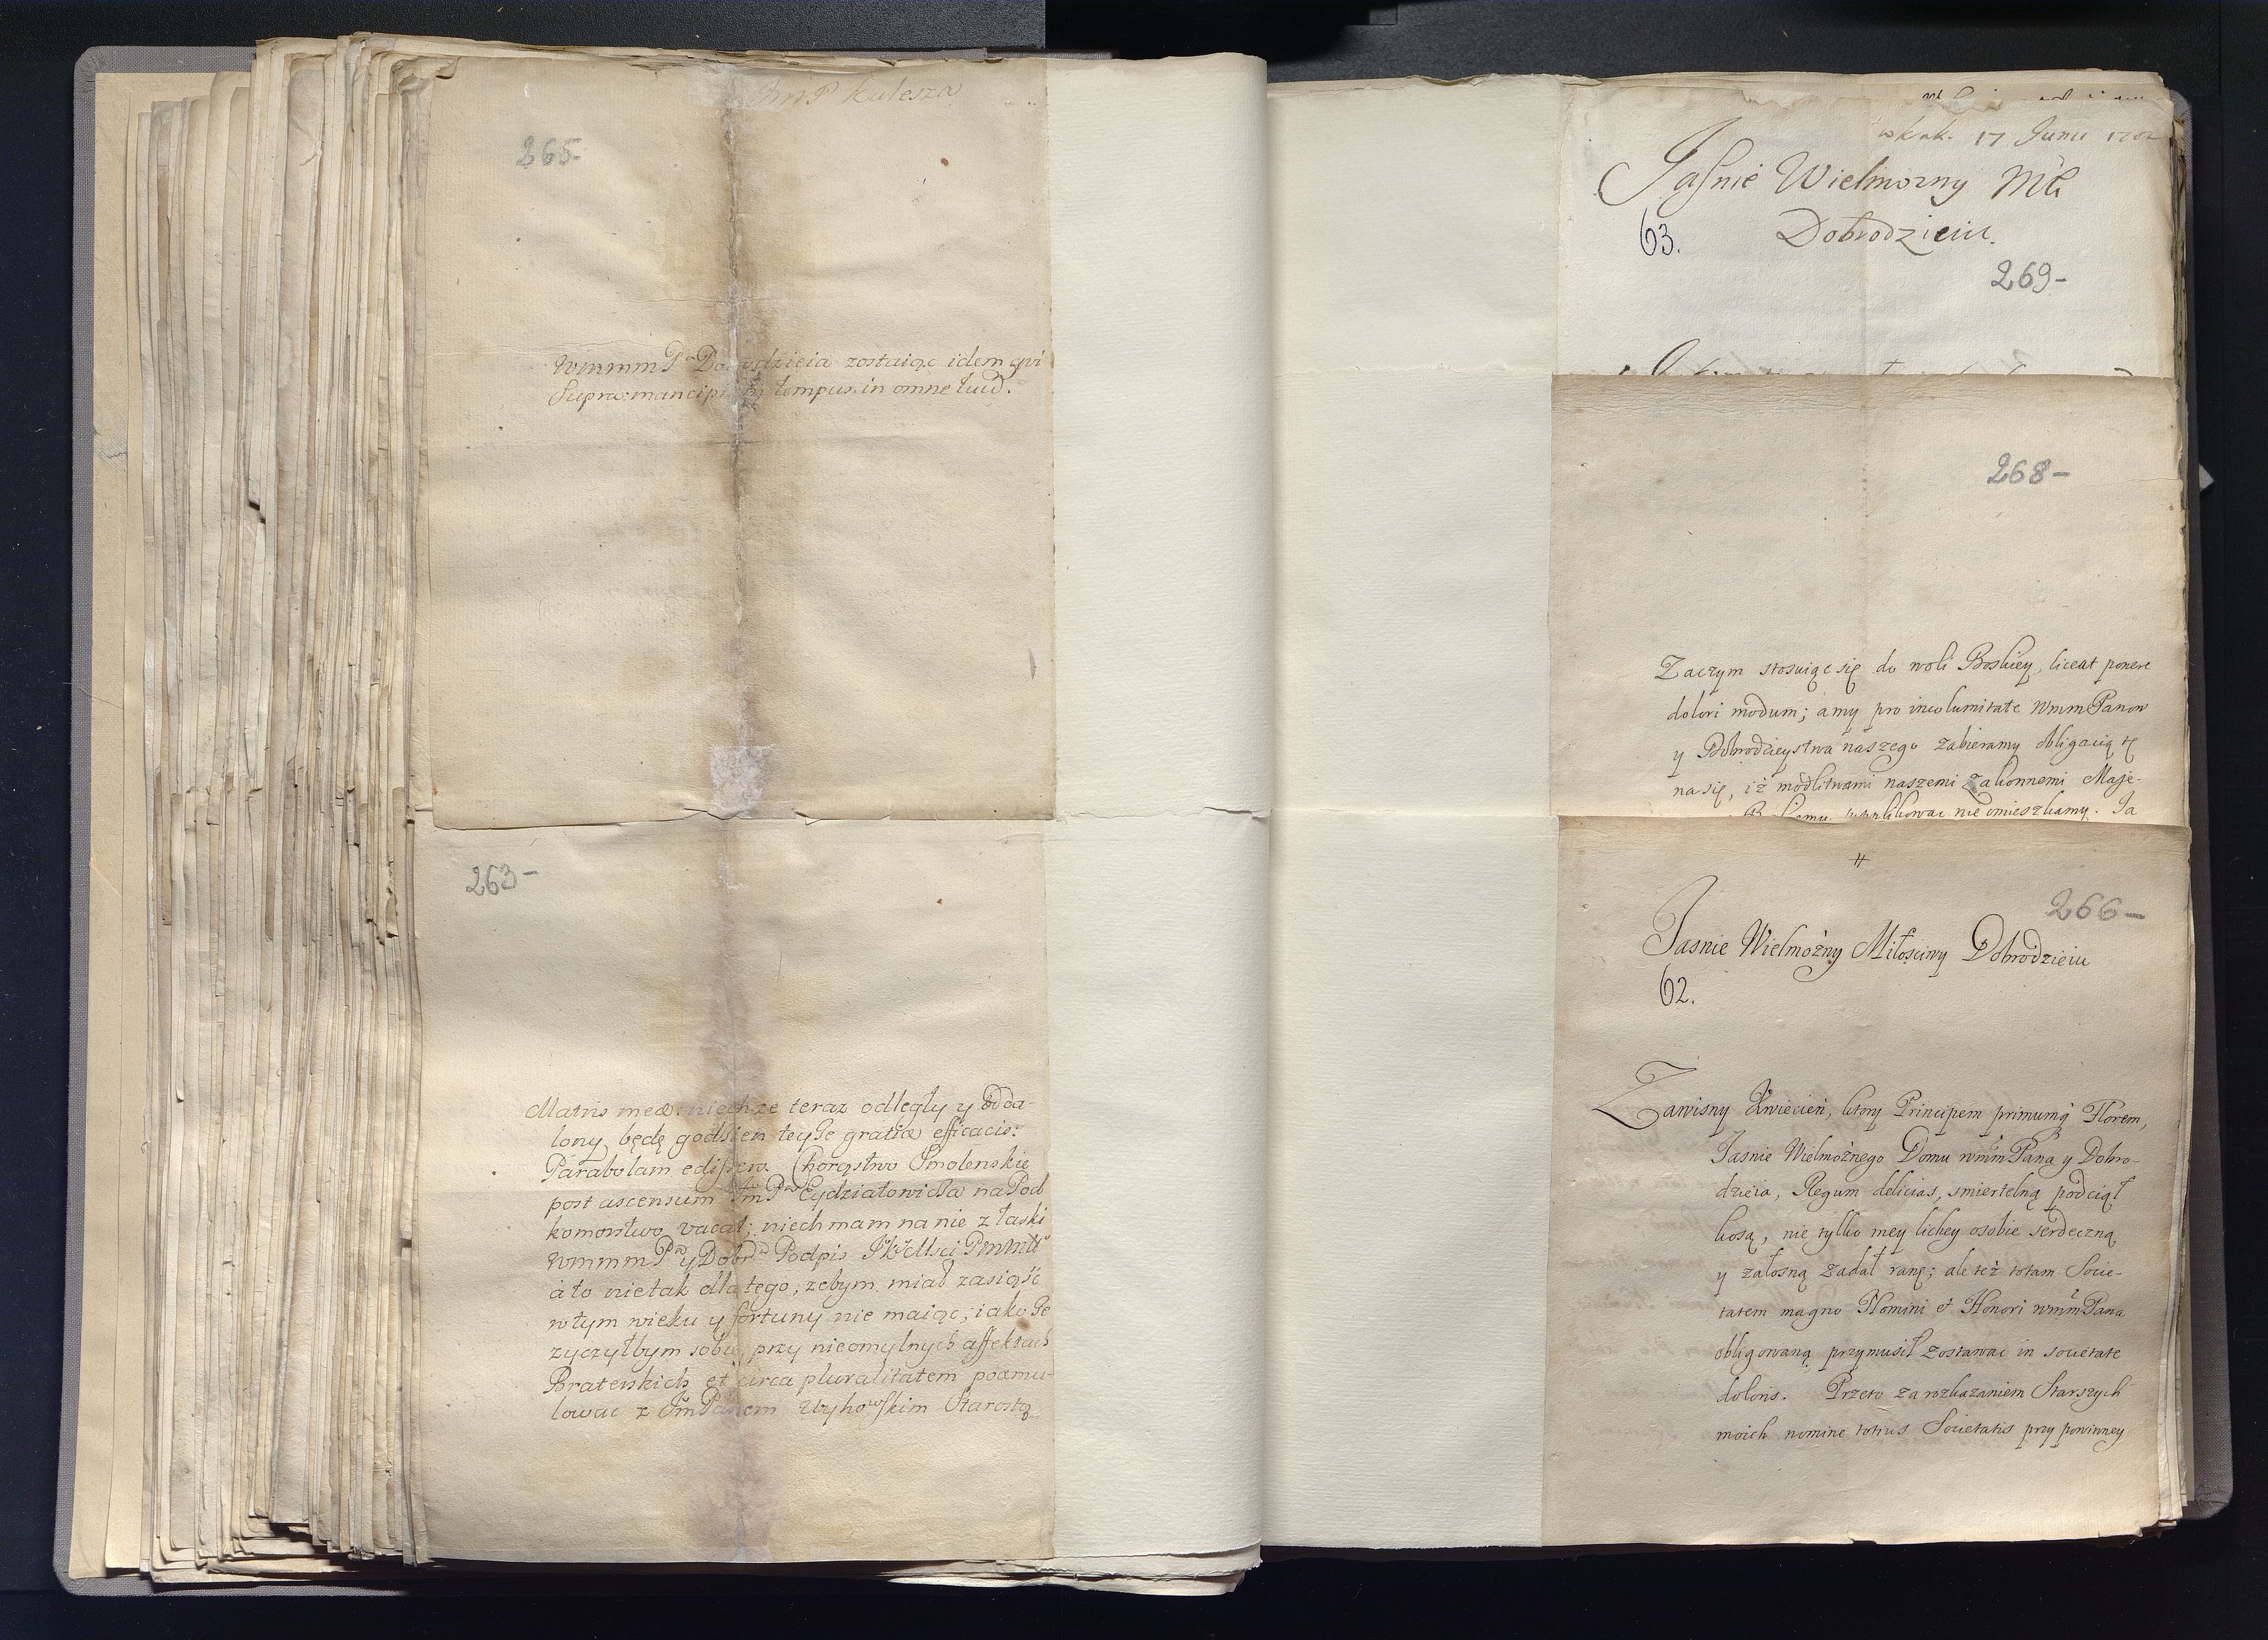 JmP Kulesza
265-
Wmmm Pa Dobrodzieia zostaiąc idem qvi
Supra: mancipium tempus in omne tuū.
263-
Matris meæ: niechze teraz odległy y odda-
lony będę godzien teyże gratiæ efficacis.
Parabolam edissero. Chorąstwo Smolenskie
post ascensum Jm Pa Eydziatowicza na Pod
komorstwo vacat; niech mam na nie z łaski
Wmmm Pa y Dobra Podpis
á to nie tak dla tego, zebym miał zasiąść
w tym wieku y fortuny nie maiąc; iako że
zyczyłbym sobie, przy nieomylnych affektach
Braterskich et circa pluralitatem poæmu-
lowac z Jm Panem Starostą
17 Junii 1702
Jaśnie Wielmozny
Dobrodzieiu.
63.
269-
268-
Zaczym stosuiąc się do woli Boskiey, liceat ponere
dolori modum; amy pro incolumitate Wmm Panow
y Dobrodzieystwa naszego zabieramy obligacią tę
na się, iż modlitwami naszemi Zakonnemi Maje-
supplikowac nie omieszkamy. Ja
#
266-
Jasnie Wielmożny Miłosciwy Dobrodzieiu
62.
Zawisny Kwiecień, ktory Principem primumq̢ Florem,
Jasnie Wielmożnego Domu wmm Pana y Dobro-
dzieia, Regum delicias, smiertelną podciął
kosą, nie tylko mey lichey osobie serdeczną
y załosną zadał ranę; ale też totam Socie-
tatem magno Nomini et Honori wmm Pana
obligowaną przymusił zostawac in societate
doloris. Przeto za rozkazaniem Starszych
moich nomine totius Societatis przy powinney